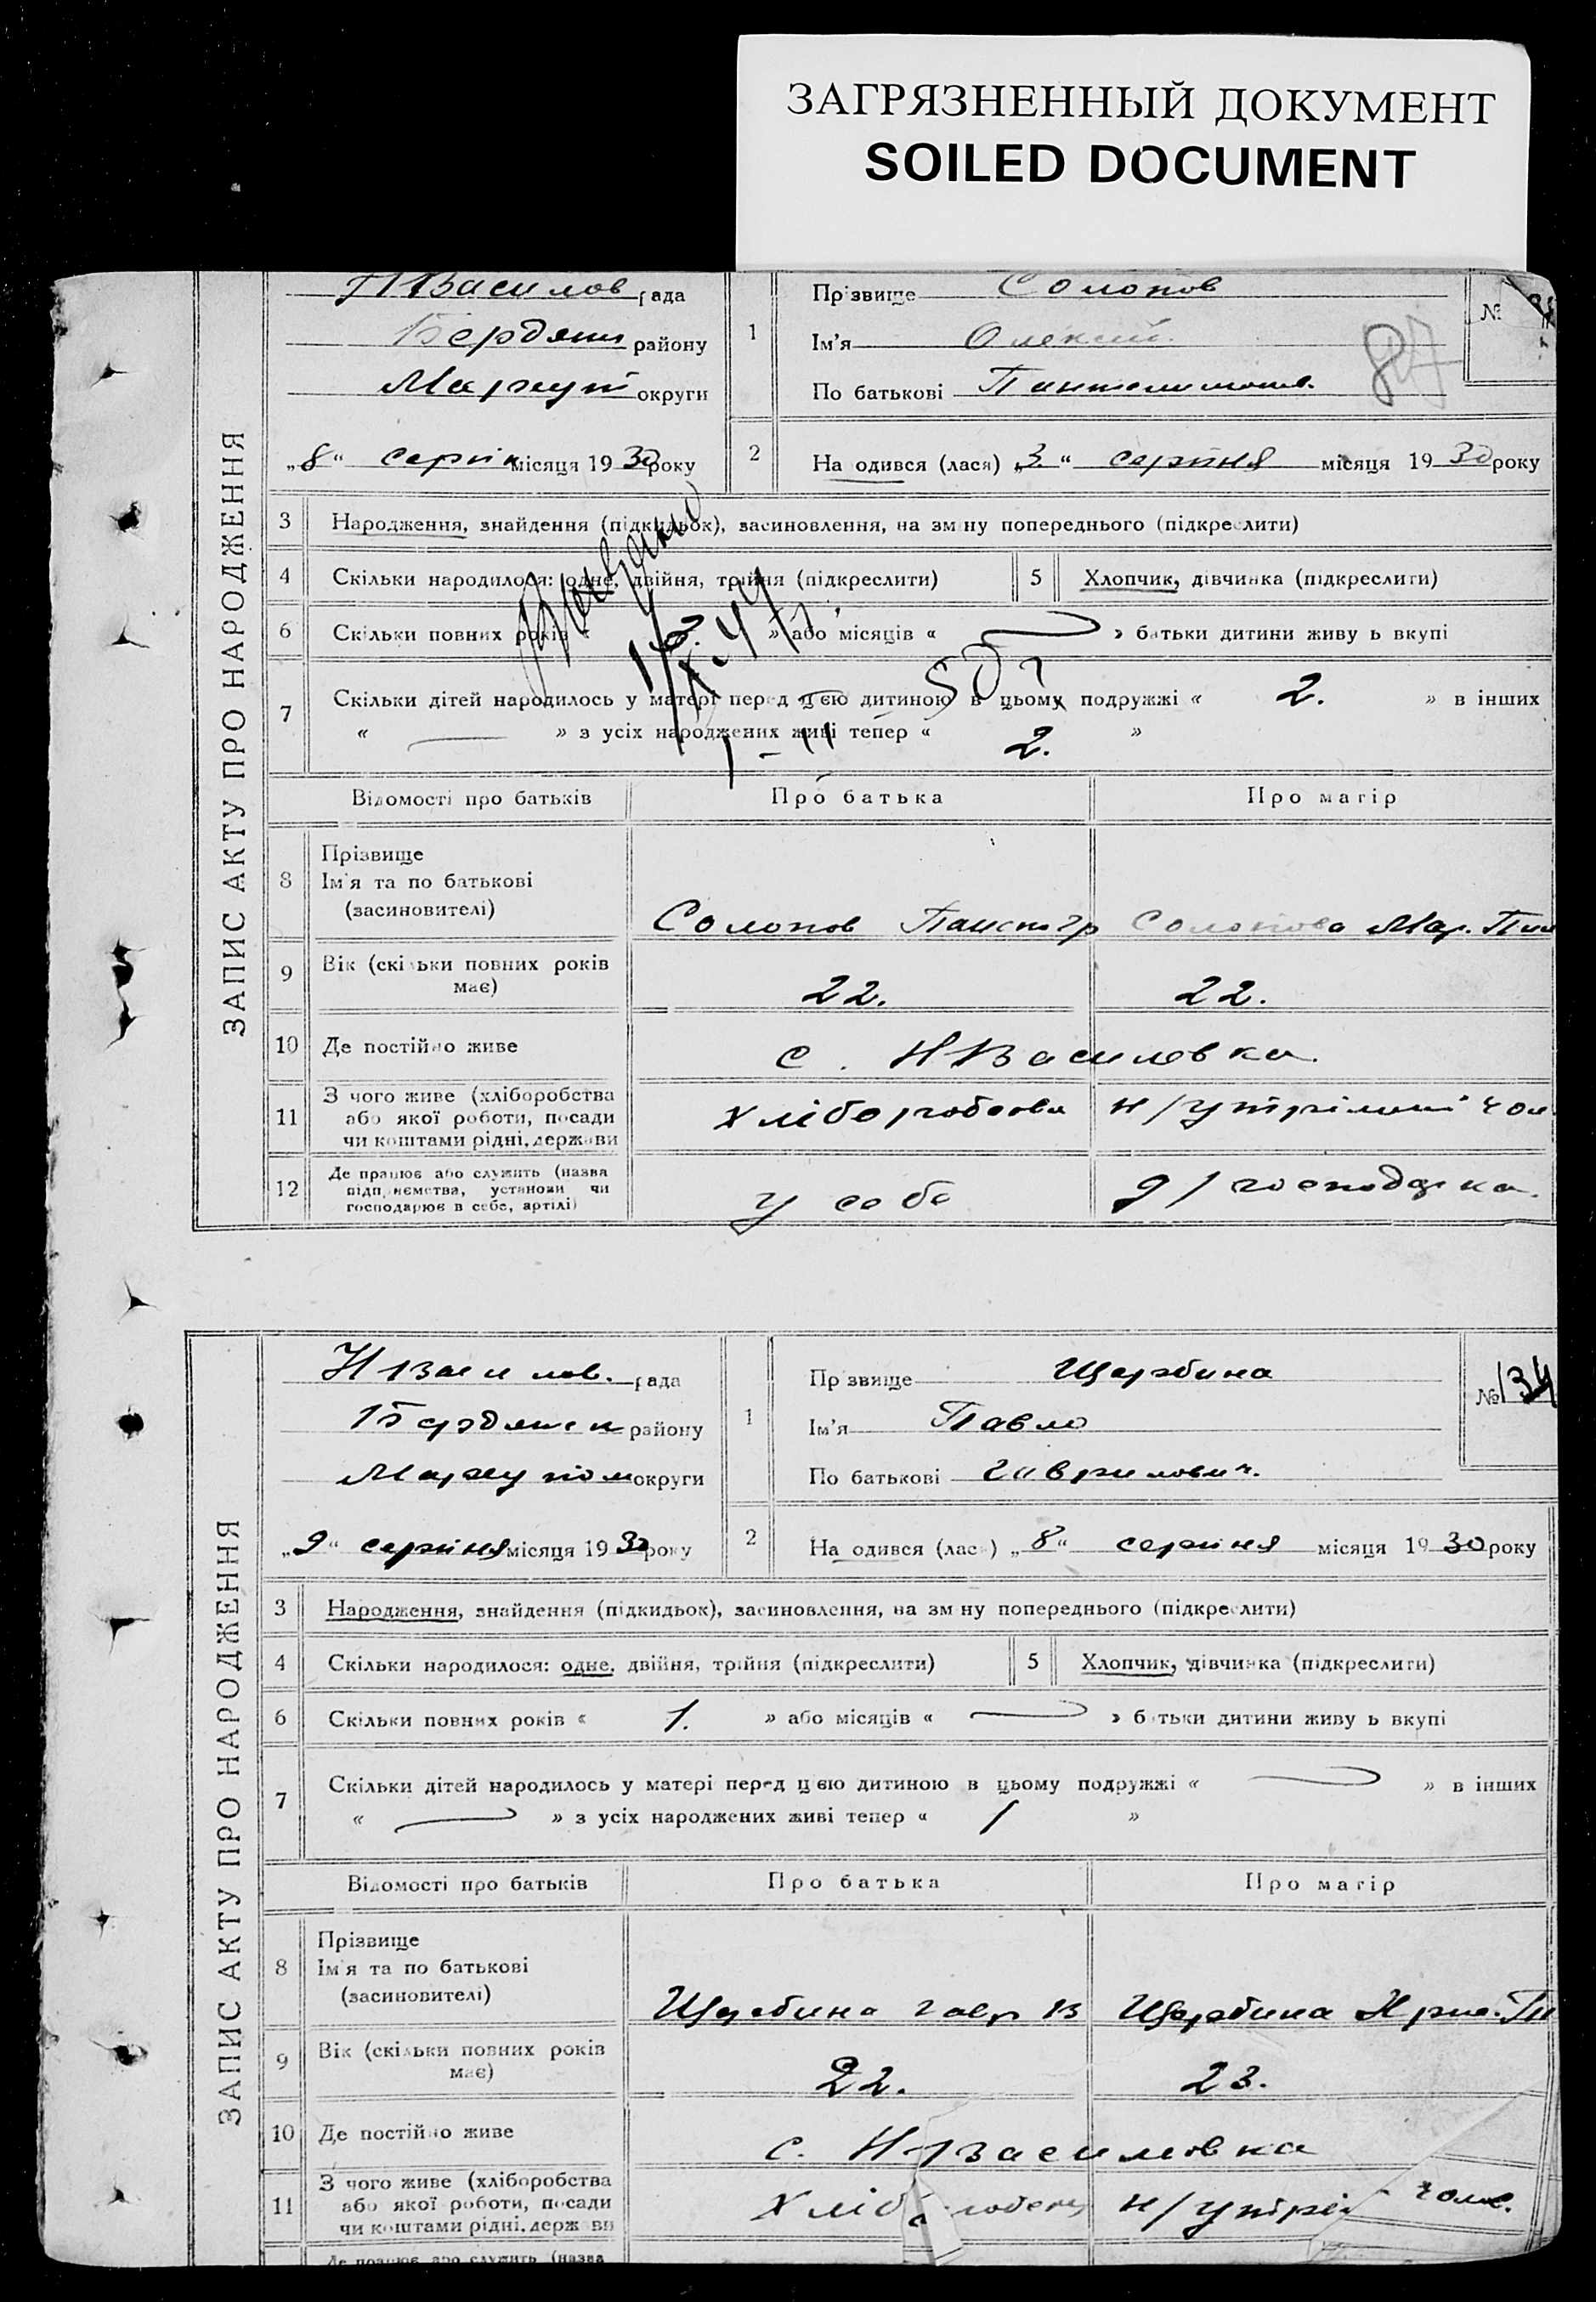 ЗАГРЯЗНЕННЫЙ ДОКУМЕНТ
SOILED DOCUMENT
ЗАПИС АКТУ ПРО НАРОДЖЕННЯ
Василов рада
Бердянськ району
Маріуп округи
„8“ серпня місяця 1930 року
1
Прізвище Солопов
Ім'я Олексій
По батькові Пантелимонов.
№
84
2
На одився (лася) „3“ серпня місяця 1930 року
3 Народження, знайдення (підкидьок), засиновлення, на зміну попереднього (підкреслити)
4 Скільки народилося: одне, двійня, трійня (підкреслити)
5 Хлопчик, дівчинка (підкреслити)
6 Скільки повних років « 3. » або місяців « » батьки дитини живуть вкупі
7 Скільки дітей народилось у матері перед цією дитиною в цьому подружжі « 2. » в інших
« — » з усіх народжених живі тепер « 2. »
Відомості про батьків Про батька Про матір
8 Прізвище
Ім'я та по батькові
(засиновителі)
Солопов Солопова Мар.
9 Вік (скільки повних років має) 22. 22.
10 Де постійно живе с. Н Василовка.
11 З чого живе (хліборобства
або якої роботи, посади
чи коштами рідні, держави
н/утрімані чол
12 Де працює або служить (назва
підприємства, установи чи
господарює в себе, артілі)
у себе д/господарка.
ЗАПИС АКТУ ПРО НАРОДЖЕННЯ
Н Василов. рада
Бердянськ району
Маріупол округи
„9“ серпня місяця 1930 року
1
Прізвище Щербина
Ім'я Павло
По батькові Гаврилович.
№ 134
2
На одився (лась) „8“ серпня місяця 1930 року
3 Народження, знайдення (підкидьок), засиновлення, на зміну попереднього (підкреслити)
4 Скільки народилося: одне, двійня, трійня (підкреслити)
5 Хлопчик, дівчинка (підкреслити)
6 Скільки повних років « 1. » або місяців « — » батьки дитини живуть вкупі
7 Скільки дітей народилось у матері перед цією дитиною в цьому подружжі « — » в інших
« — » з усіх народжених живі тепер « 1 »
Відомості про батьків Про батька Про матір
8 Прізвище
Ім'я та по батькові
(засиновителі)
Щербина Гавр В Щербина
9 Вік (скільки повних років має) 22. 23.
10 Де постійно живе с. Н-Василовка
11 З чого живе (хліборобства
або якої роботи, посади
чи коштами рідні, держави
н/утрі чолов.
Де працює або служить (назва